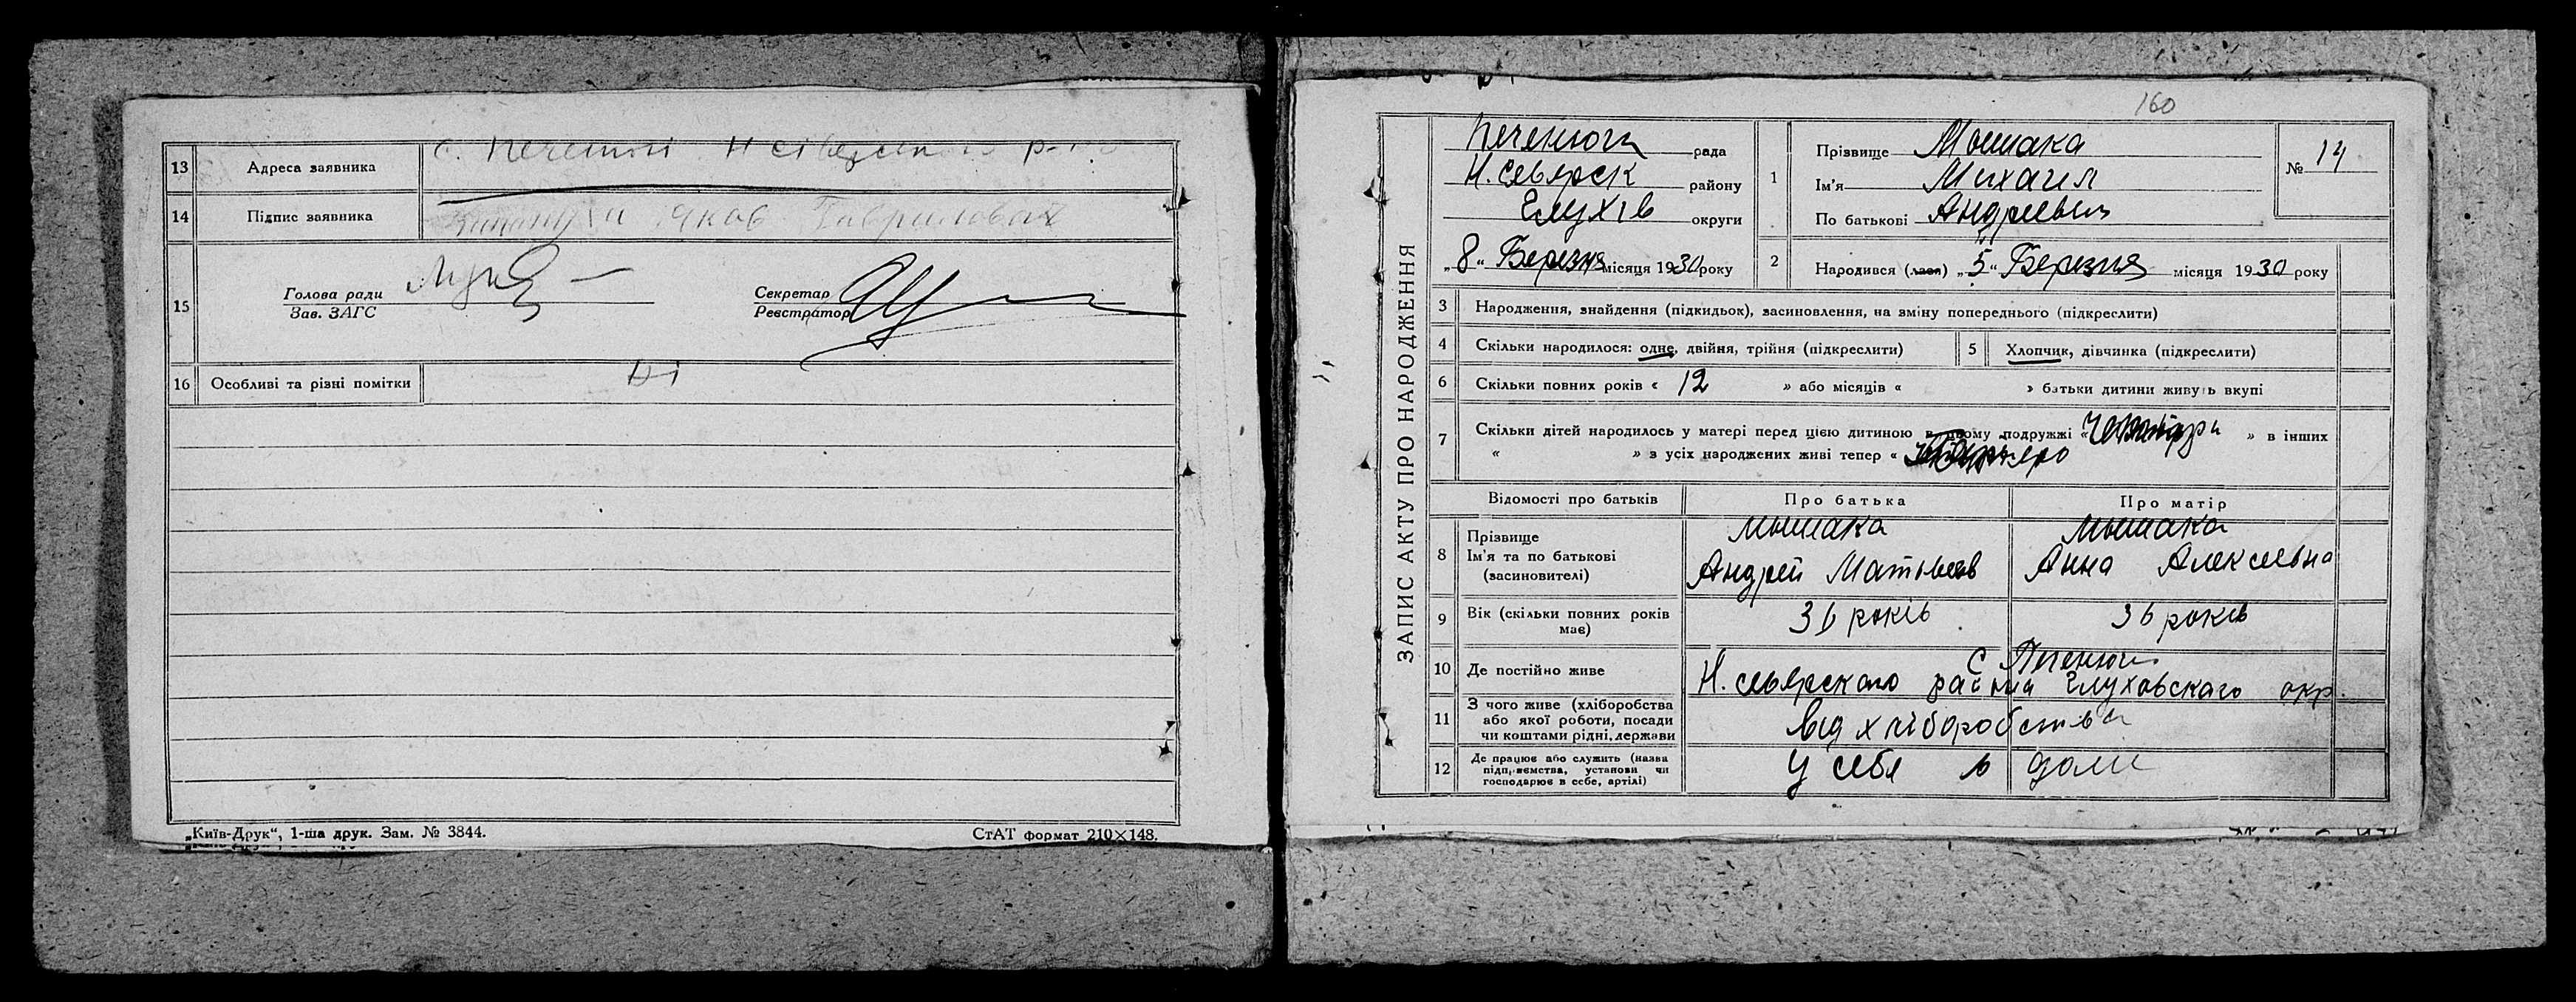 13 Адреса заявника с. Печенюгі Н сіверського р-
14 Підпис заявника Яков Гаврилович
15 Голова ради
Зав. ЗАГС
Секретар
Реєстратор
16 Особливі та різні помітки Ні
„Київ-Друк“, 1-ша друк. Зам. № 3844.
СтАТ формат 210×148.
160
ЗАПИС АКТУ ПРО НАРОДЖЕННЯ
Печенюги рада
Н. Северск району
Глухів округи
„8“ Березня місяця 1930 року
1 Прізвище Мышака
Ім'я Михаил
По батькові Андреевич
№ 14
2 Народився (лася) „5“ Березня місяця 1930 року
3 Народження, знайдення (підкидьок), засиновлення, на зміну попереднього (підкреслити)
4 Скільки народилося: одне, двійня, трійня (підкреслити)
5 Хлопчик, дівчинка (підкреслити)
6 Скільки повних років « 12 » або місяців « » батьки дитини живуть вкупі
7 Скільки дітей народилось у матері перед цією дитиною в цьому подружжі « » в інших
« » з усіх народжених живі тепер «
Відомості про батьків Про батька Про матір
8 Прізвище Мышака Мышака
Ім'я та по батькові Андрей Матвеев Анна Алексеевна
(засиновителі)
9 Вік (скільки повних років має) 36 років 36 років
10 Де постійно живе с Печенюги
Н. северского района Глуховскаго окр.
11 З чого живе (хліборобства
або якої роботи, посади
чи коштами рідні, держави
від хліборобства
12 Де працює або служить (назва
підприємства, установи чи
господарює в себе, артілі)
У себя в доме